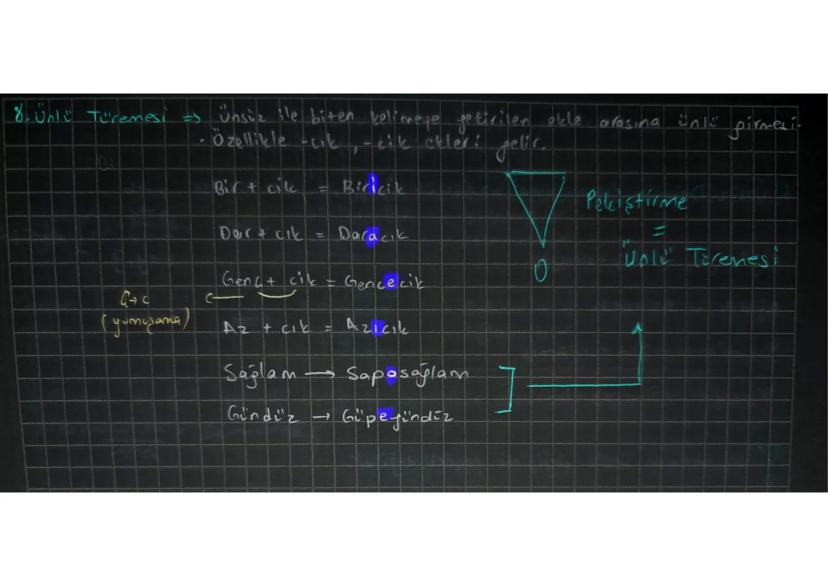 8. Ünlü Türemesi ⇒ Ünsüz ile biten kelimeye getirilen ekle arasına ünlü girmesi.
• Özellikle -cık, -cik ekleri gelir.
Bir + cik = Biricik
Dar + cık = Daracık
Genç + cik = Gencecik
Ç→c
(yumuşama)
c
Az + cık = Azıcık
Sağlam → Sapasağlam
Gündüz → Güpegündüz
Pekiştirme
=
Ünlü Türemesi